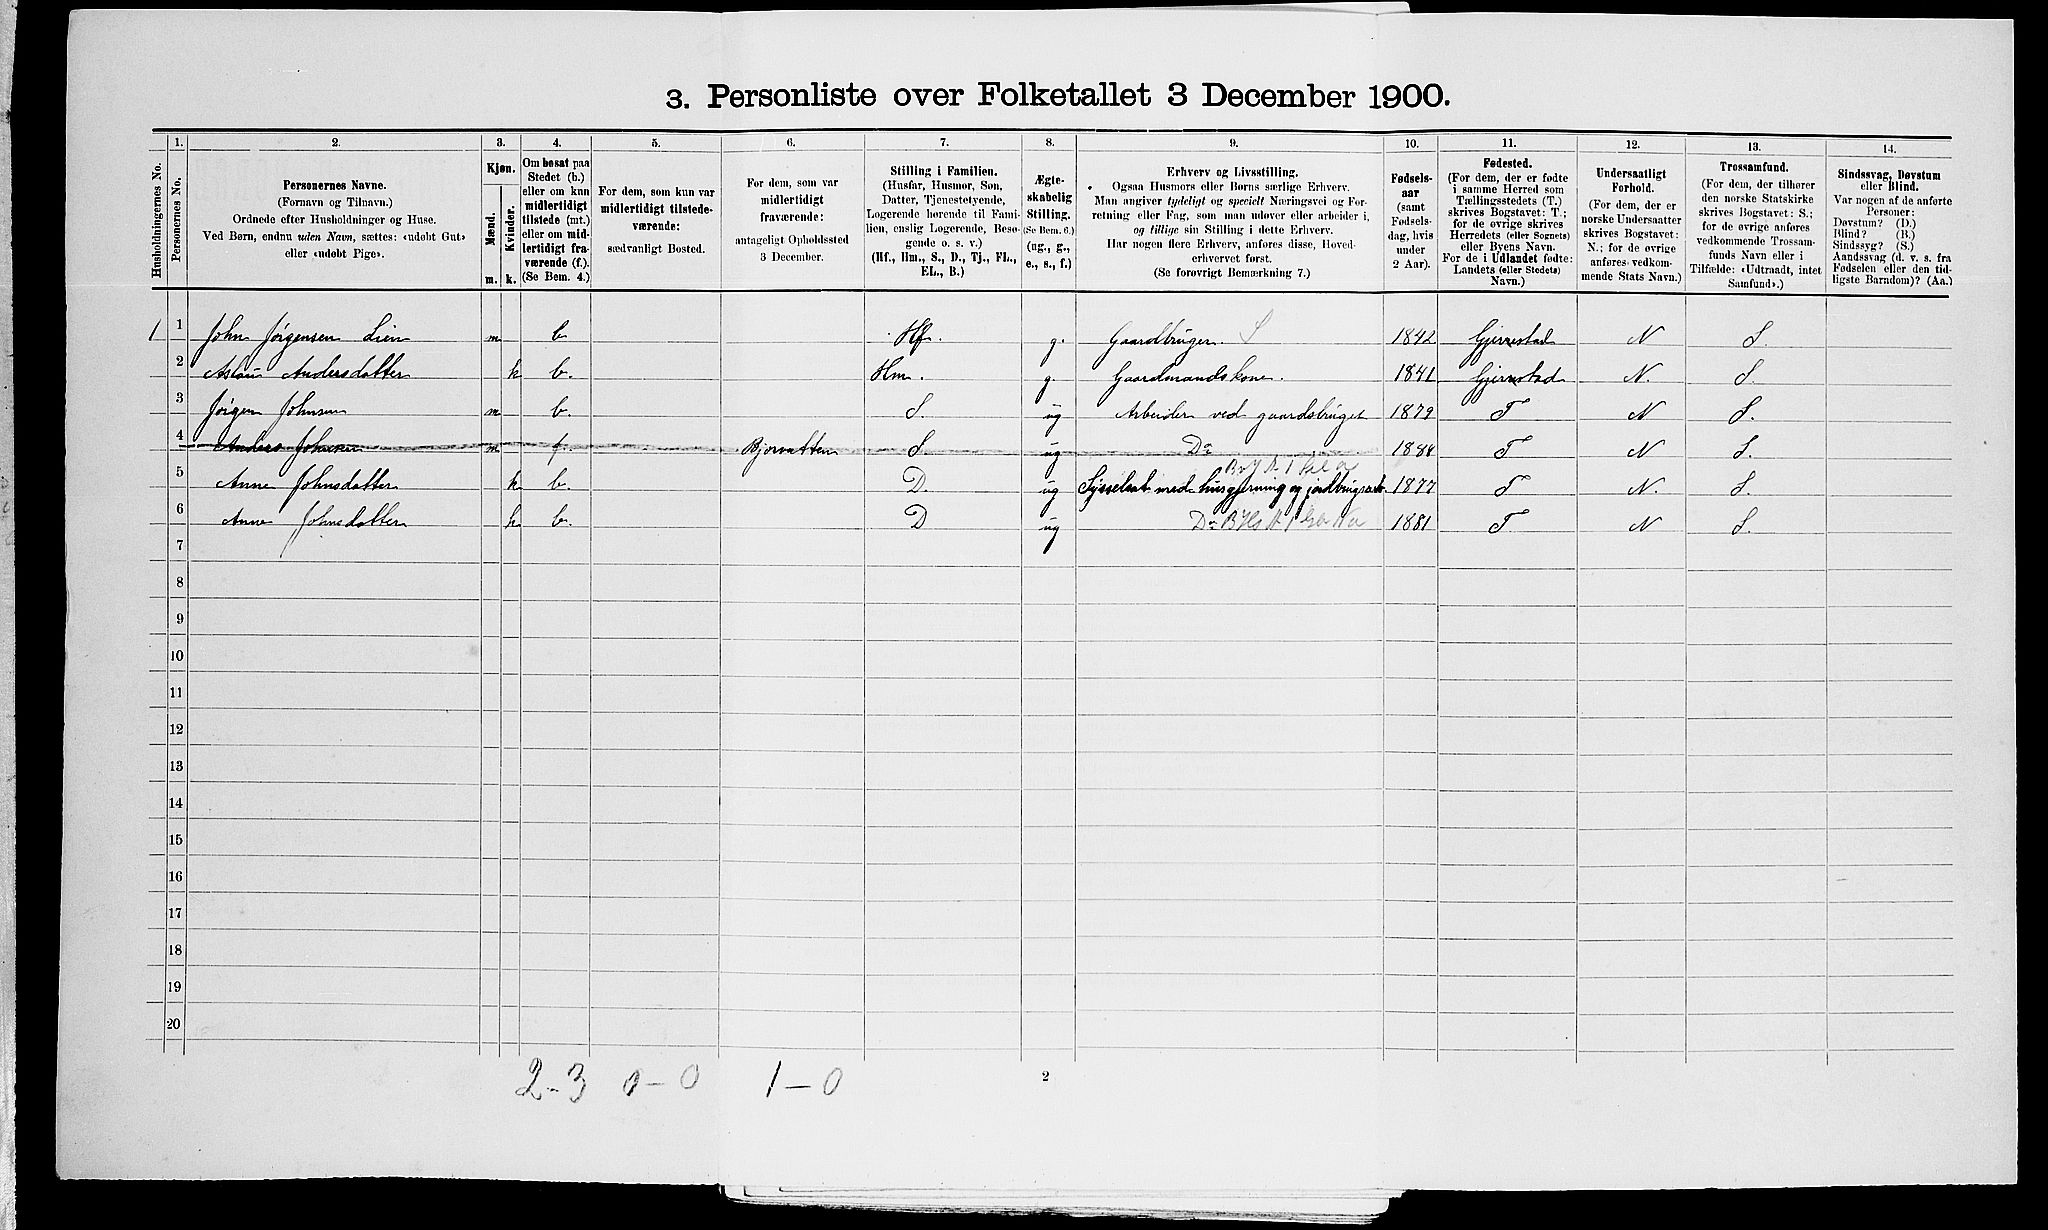 3. Personliste over Folketallet 3 December 1900.
1. 2. 3. 4. 5. 6. 7. 8. 9. 10. 11. 12. 13. 14.
Husholdningernes No.
Personernes No.
Personernes Navne.
(Fornavn og Tilnavn.)
Ordnede efter Husholdninger og Huse.
Ved Børn, endnu uden Navn, sættes: «udøbt Gut»
eller «udøbt Pige».
Kjøn.
Mænd.
Kvinder.
m. k.
Om bosat paa
Stedet (b.)
eller om kun
midlertidigt
tilstede (mt.)
eller om mid-
lertidigt fra-
værende (f.).
(Se Bem. 4.)
For dem, som kun var
midlertidigt tilstede-
værende:
sædvanligt Bosted.
For dem, som var
midlertidigt
fraværende:
antageligt Opholdssted
3 December.
Stilling i Familien.
(Husfar, Husmor, Søn,
Datter, Tjenestetyende,
Logerende hørende til Fami-
lien, enslig Logerende, Besø-
gende o. s. v.)
(Hf., Hm., S., D., Tj., FL.,
EL., B.)
Ægte-
skabelig
Stilling.
(Se Bem. 6.)
(ug., g.,
e., s., f.)
Erhverv og Livsstilling.
Ogsaa Husmors eller Børns særlige Erhverv.
Man angiver tydeligt og specielt Næringsvei og For-
retning eller Fag, som man udøver eller arbeider i,
og tillige sin Stilling i dette Erhverv.
Har nogen flere Erhverv, anføres disse, Hoved-
erhvervet først.
(Se forøvrigt Bemærkning 7.)
Fødsels-
aar
(samt
Fødsels-
dag, hvis
under
2 Aar).
Fødested.
(For dem, der er fødte
i samme Herred som
Tællingsstedets (T.)
skrives Bogstavet: T.;
for de øvrige skrives
Herredets (eller Sognets)
eller Byens Navn.
For de i Udlandet fødte:
Landets (eller Stedets)
Navn.)
Undersaatligt
Forhold.
(For dem, der er
norske Undersaatter
skrives Bogstavet:
N.; for de øvrige
anføres vedkom-
mende Stats Navn.)
Trossamfund.
(For dem, der tilhører
den norske Statskirke
skrives Bogstavet: S.;
for de øvrige anføres
vedkommende Trossam-
funds Navn eller i
Tilfælde: «Udtraadt, intet
Samfund».)
Sindssvag, Døvstum
eller Blind.
Var nogen af de anførte
Personer:
Døvstum? (D.)
Blind? (B.)
Sindssyg? (S.)
Aandssvag (d. v. s. fra
Fødselen eller den tid-
ligste Barndom)? (Aa.)
1 1 John Jørgensen Lien m b Hf. g. Gaardbruger. S 1842 Gjerrestad N S.
2 Aslau Andersdatter k b. Hm. g. Gaardmandskone. 1841 Gjerrestad N. S.
3 Jørgen Johnsen m b. S. ug Arbeider ved gaardsbruget 1879 T N S.
4 Anders Johnsen m f. Bjorvatten S ug Do 1884 T N S.
5 Anne Johnsdatter k b. D. ug Sysselsat med husgjerning og jordbrugsarb. 1877 T N. S.
6 Anne Johnsdatter k b. D ug Do 1881 T N S.
7
8
9
10
11
12
13
14
15
16
17
18
19
20
2-3 0-0 1-0 2